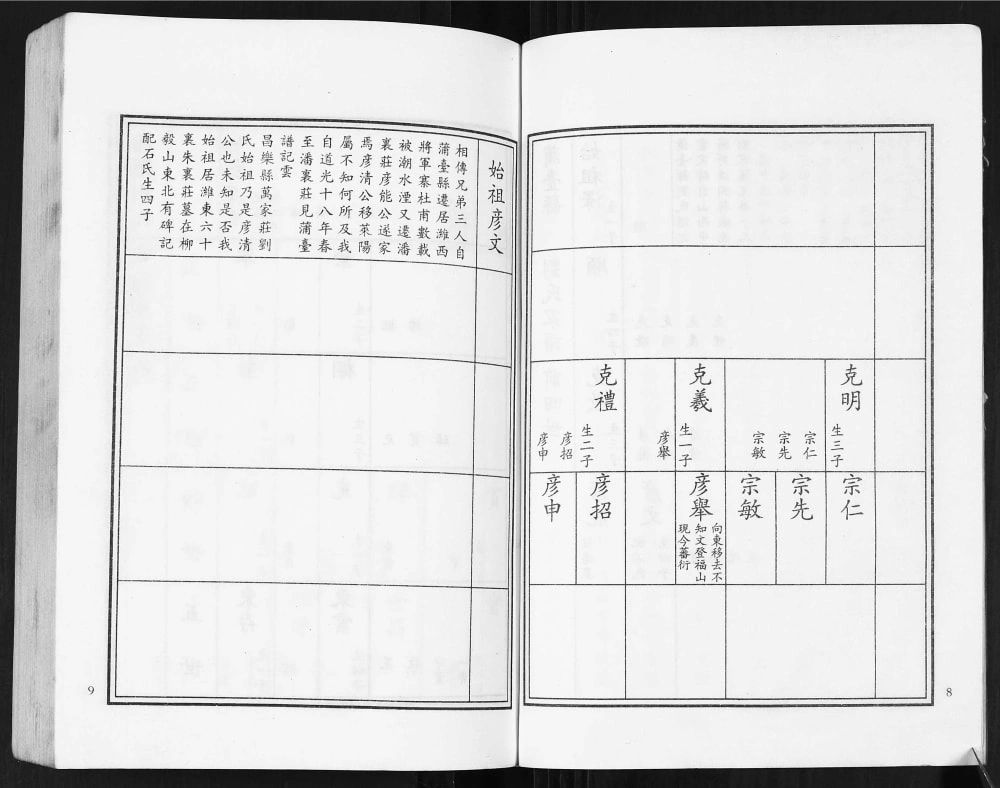 克明
生三子
宗仁
宗先
宗敏
克義
生一子
彦舉
克禮
生二子
彦招
彦申
宗仁
宗先
宗敏
彦舉
向東移去不
知文登福山
現今蕃衍
彦招
彦申
8
始祖彦文
相傳兄弟三人自
蒲臺縣遷居濰西
將軍寨杜甫數載
被潮水湮又遷潘
裏莊彦能公遂家
焉彦清公移萊陽
屬不知何所及我
自道光十八年春
至潘裏莊見蒲臺
譜記雲
昌樂縣萬家莊劉
氏始祖乃是彦清
公也未知是否我
始祖居濰東六十
裏朱裏莊墓在柳
毅山東北有碑記
配石氏生四子
9